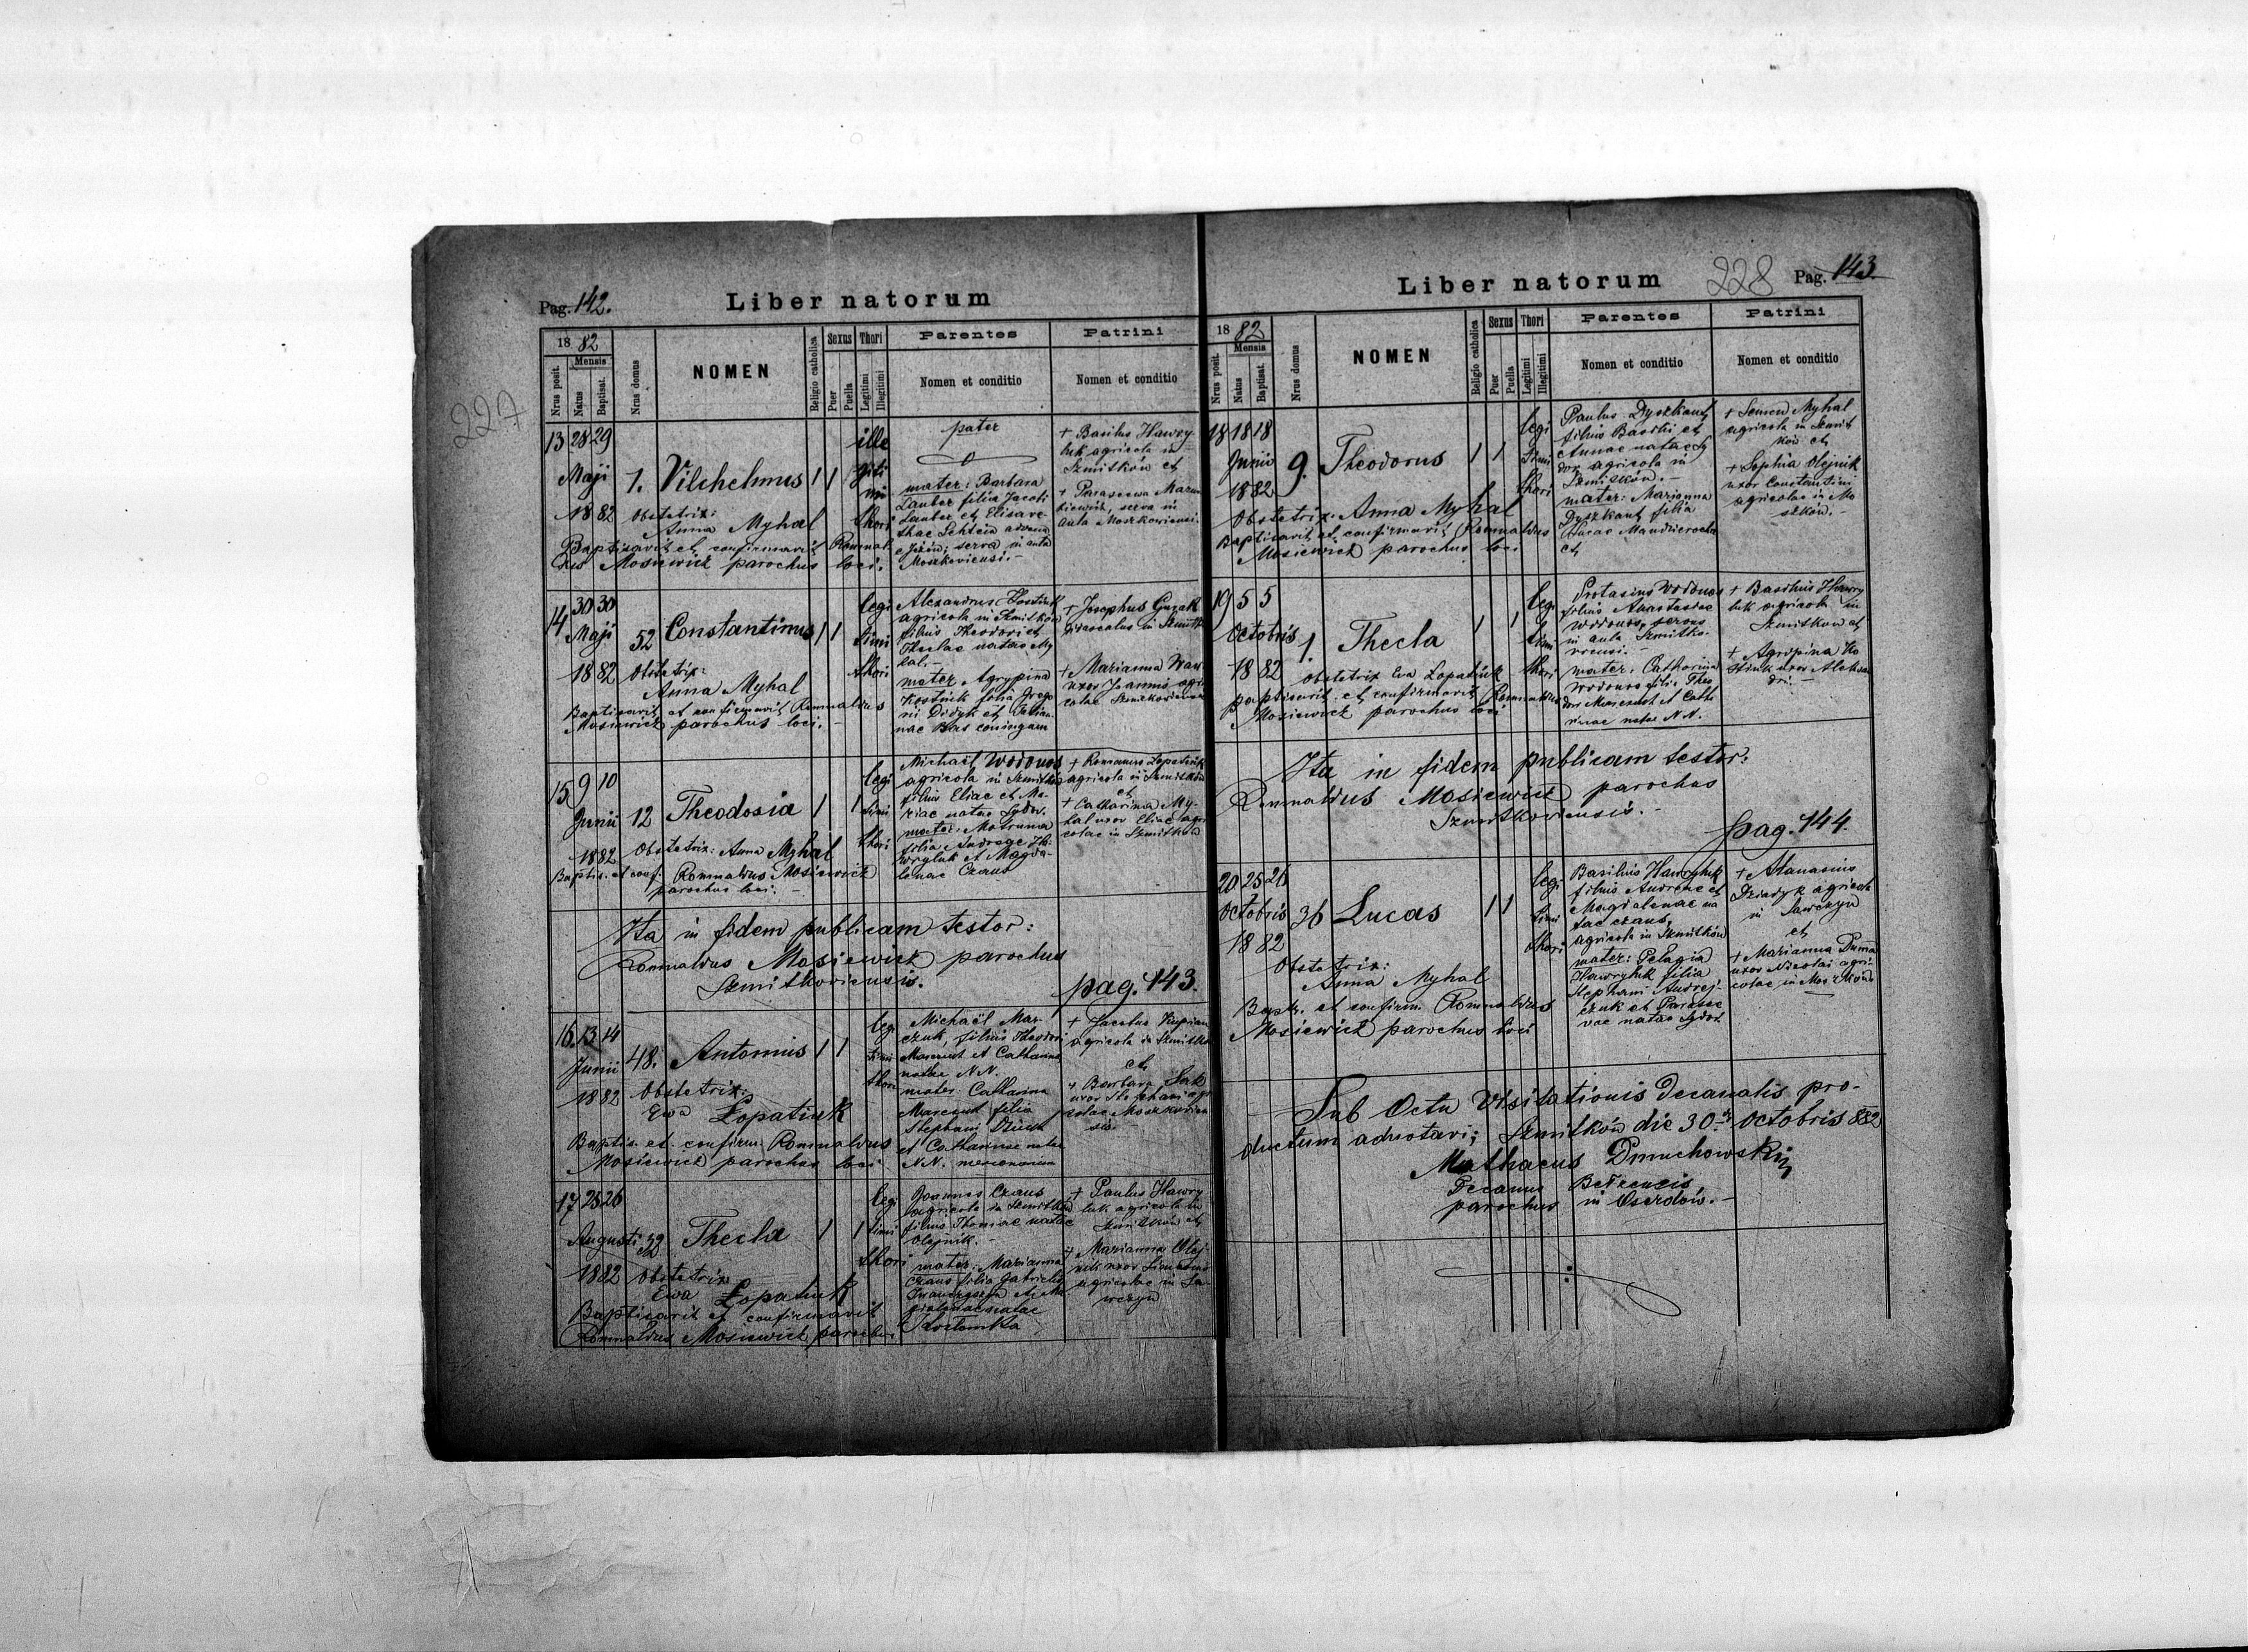 227
Pag. 142.
Liber natorum
18 82
Mensis
Nrus posit.
Natus
Baptisat.
Nrus domus
NOMEN
Religio catholica
Sexus
Puer
Puella
Thori
Legitimi
Illegitimi
Parentes
Nomen et conditio
Patrini
Nomen et conditio
13 28 29
Maji
1882
1. Vilchelmus 1 1
ille
giti
mi
thori
Obstetrix:
Anna Myhal
Baptisavit et confirmavit Rommal
dus Mosiewicz parochus loci.
pater
mater: Barbara
Lauber filia Jacobi
Lauber et Elisave-
thae
serva in aula
Moszkoviensi. –
+ Basilus Hawry-
luk agricola in
Szmitków et
+ Parascewa
serva in
aula Moszkowiensi.
14 30 30
Maji
1882
52 Constantinus 1 1
legi
timi
thori
Obstetrix:
Anna Myhal
Baptisavit et confirmavit Rommaldus
Mosiewicz parochus loci.
Alexandrus
agricola in Szmitków
filius Theodori et
Theclae natae My
hal. –
mater Agrypina
Kostiuk filia Grego
rii Didyk et
nae
+ Josephus
in
+ Marianna
uxor Joannis agri
colae
15 9 10
Junii
1882
12 Theodosia 1 1
legi
timi
thori
Obstetrix: Anna Myhal
Baptis. et conf. Rommaldus Mosiewicz
parochus loci. –
Michaël Wodonos
agricola in Szmitków
filius Eliae et Ma-
riae natae Sydor.
mater: Matruna
filia Andreae Ha-
wryluk et Magda-
lenae Czaus
+ Romanus Lopatiuk
agricola in Szmitków
et
+ Catharina My-
hal uxor Eliae agri
colae in Szmitków
Ita in fidem publicam testor:
Rommaldus Mosiewicz parochus
Szmitkoviensis.
pag. 143.
16. 13 14
Junii
1882
48. Antonius 1 1
legi
timi
thori
Obstetrix:
Ewa Łopatiuk
Baptis. et confirm. Rommaldus
Mosiewicz parochus loci
Michaël Mar-
czuk, filius Theodori
Marczuk et Catharina
natae N.N.
mater: Catharina
Marczuk filia
Stephani
et Catharinae natae
N.N.
+ Jacobus
agricola in Szmitków
et
+ Barbara
uxor Stephani agri
colae Moszkovien
sis.
17 25 26
Augusti
1882
32 Thecla 1 1
legi
timi
thori
Obstetrix
Ewa Łopatiuk
Baptisavit et confirmavit
Rommaldus Mosiewicz parochus
Joannes Czaus
agricola in Szmitków
filius Thomae natae
Olejnik. –
mater: Marianna
Czaus filia Gabrielis
+ Paulus Hawry
luk agricola in
Szmitków et
+ Marianna Olej
nik uxor
agricolae in Sa-
wczyn
Liber natorum
228
Pag. 143
18 82
Mensis
Nrus posit.
Natus
Baptisat.
Nrus domus
NOMEN
Religio catholica
Sexus
Puer
Puella
Thori
Legitimi
Illegitimi
Parentes
Nomen et conditio
Patrini
Nomen et conditio
18 18 18
Junii
1882
9. Theodorus 1 1
legi
timi
thori
Obstetrix: Anna Myhal
Baptisavit et confirmavit Rommaldus
Mosiewicz parochus loci
Paulus Dyszkant
filius Basilii et
Annae natae Sy
dor agricola in
Szmitków. –
mater: Marianna
Dyszkant filia
et
+ Semen Myhal
agricola in Szmit
ków et
+ Sophia Olejnik
uxor Constantini
agricolae in Mo
szków. –
19 5 5
Octobris
1882
1. Thecla 1 1
legi
timi
thori
Obstetrix Eva Lopatiuk
Baptisavit et confirmavit Rommaldus
Mosiewicz parochus loci
Protasius Wodonos
filius Anastasiae
Wodonos, servus
in aula Szmitko-
viensi. –
mater: Catharina
Wodonos filia Theo
dori Marczuk et Catha
rinae natae N.N.
+ Basilius Hawry
luk agricola in
Szmitkow et
+ Agrypina Ko
stiuk uxor Aleksan
dri. –
Ita in fidem publicam testor:
Rommaldus Mosiewicz parochus
Szmitkoviensis. –
pag. 144.
20 25 26
Octobris
1882
36 Lucas 1 1
legi
timi
thori
Obstetrix:
Anna Myhal
Baptis. et confirm. Rommaldus
Mosiewicz parochus loci
Basilius Hawryluk
filius Andreae et
Magdalenae na
tae Czaus,
agricola in Szmitków
mater: Pelagia
Hawryluk filia
Stephani Andrej-
czuk et Parasce
vae natae Sydor
+ Atanasius
Dziadyk agricola
in Sawczyn
et
+ Marianna Duma
uxor Nicolai agri-
colae in Moszków
Sub Actu Visitationis Decanalis pro-
ductum adnotavi; Szmitków die 30. Octobris 882
Mathaeus Dmuchowski
Decanus Bełzensis,
parochus in Oserdów. –